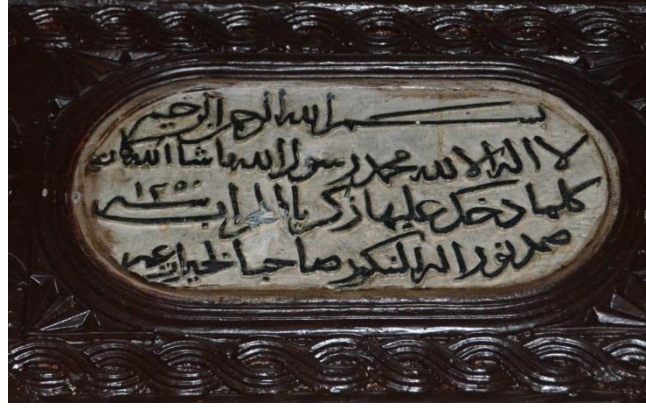 بسم الله الرحمن الرحيم
لا اله الا الله محمد رسول الله ماشا الله كان
كلما دخل عليها زكريا المحراب سنه ١٢٥٠
صاحب الخيرات